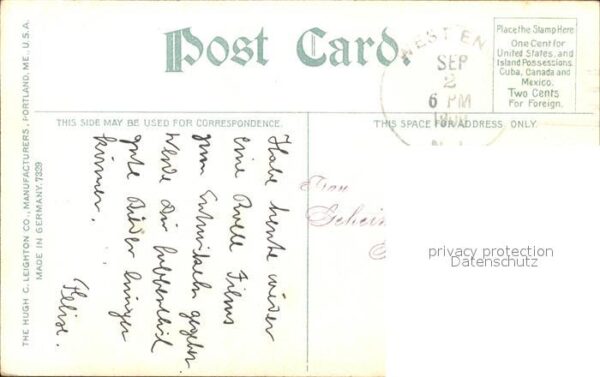 Post Card.
WEST EN
SEP
2
6 PM
Place the Stamp Here
One Cent for
United States, and
Island Possessions
Cuba, Canada and
Mexico.
Two Cents
For Foreign.
THE HUGH C. LEIGHTON CO., MANUFACTURERS, PORTLAND, ME., U.S.A.
MADE IN GERMANY. 7339
THIS SIDE MAY BE USED FOR CORRESPONDENCE.
THIS SPACE FOR ADDRESS ONLY.
Habe heute wieder
eine Rolle Films
zum Entwickeln gegeben.
Werde Dir hoffentlich
gute Bilder bringen
können.
Felix.
Frau
Geheim
privacy protection
Datenschutz